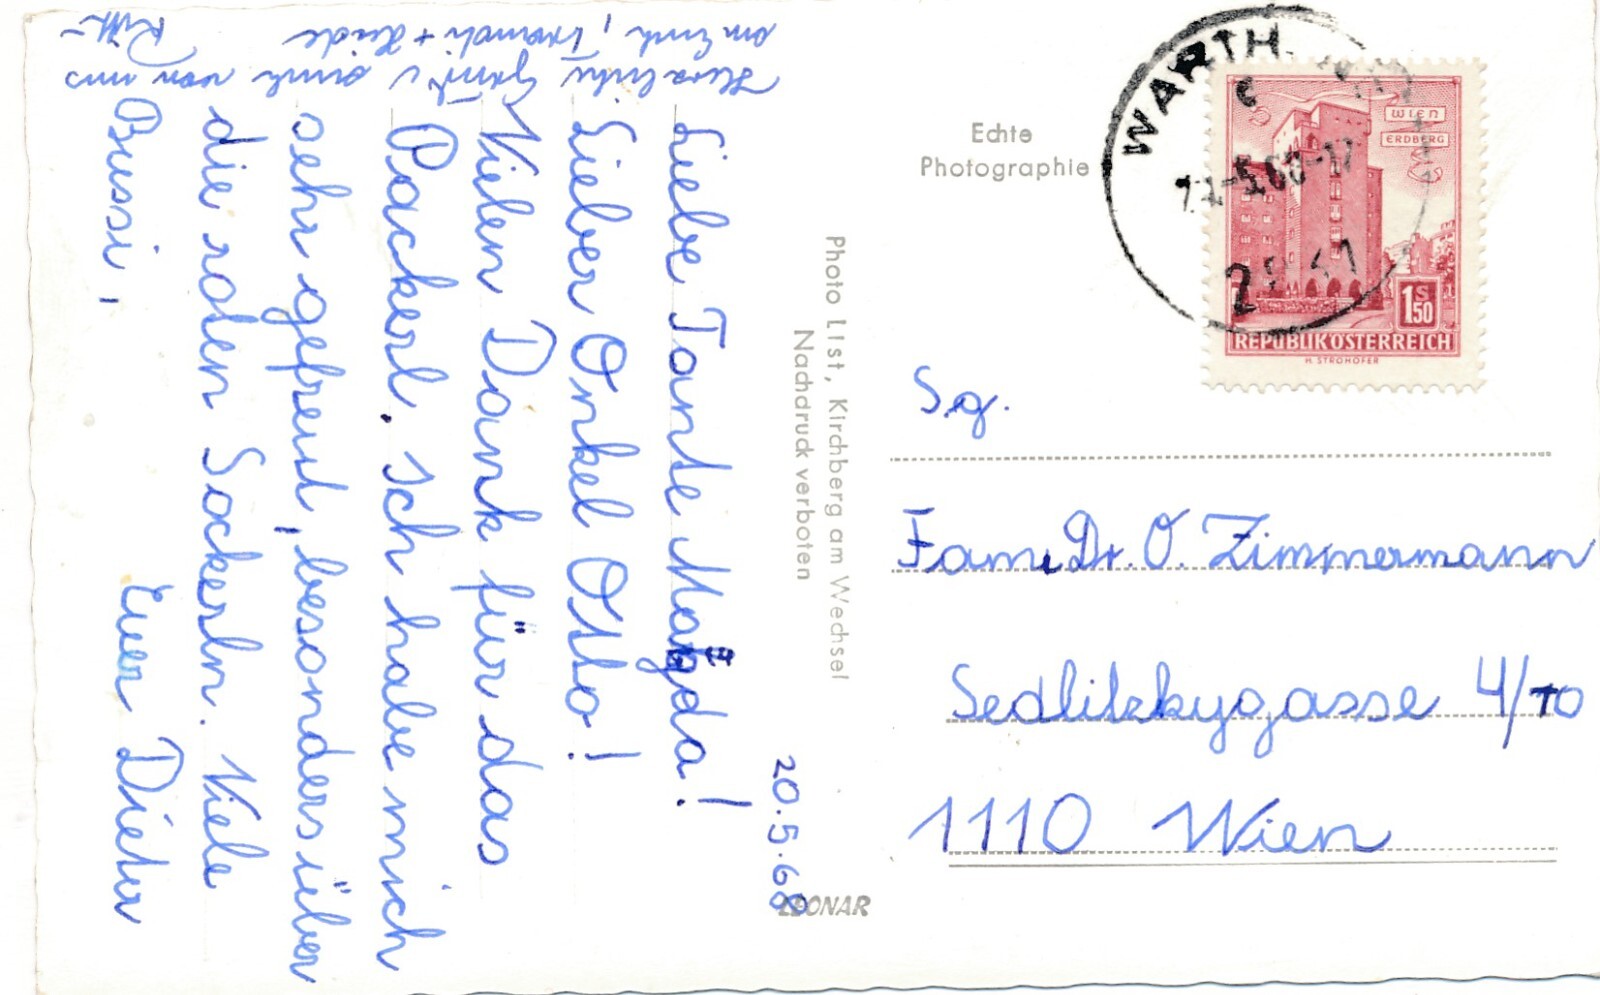 20.5.68
Liebe Tante Magda!
Lieber Onkel Otto!
Vielen Dank für das
Packerl. Ich habe mich
sehr gefreut, besonders über
die roten Sockerln. Viele
Bussi,
Euer Dieter
Herzliche Grüße auch von uns
an Euch,
+ Heide
Photo List, Kirchberg am Wechsel
Nachdruck verboten
LEONAR
Echte
Photographie
WARTH
2831
WIEN
ERDBERG
1 S 50
REPUBLIK ÖSTERREICH
H. STROHOFER
Sg.
Fam. Dr. O. Zimmermann
Sedlitzkygasse 4/10
1110 Wien